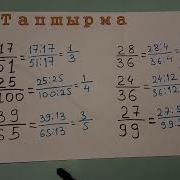 Тапшырма
17/51 = 17:17/51:17 = 1/3
25/100 = 25:25/100:25 = 1/4
39/65 = 39:13/65:13 = 3/5
28/36 = 28:4/36:4
24/36 = 24:12/36:12
27/99 = 27:/99: